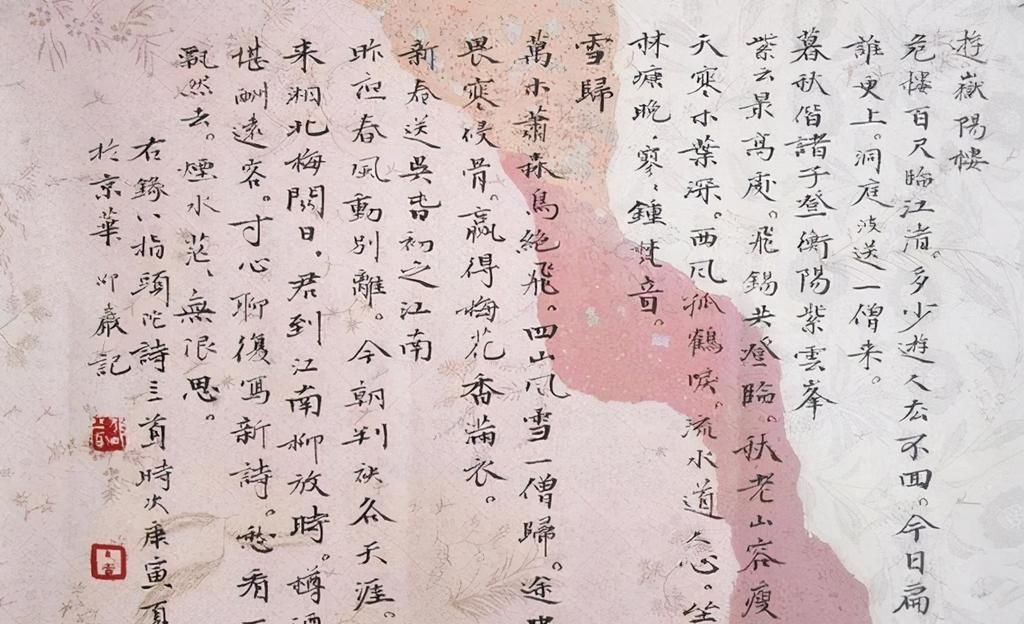 遊嶽陽樓
危樓百尺臨江渚。多少遊人去不回。今日扁
誰更上。洞庭波送一僧来。
暮秋偕諸子登衡陽紫雲峯
紫云最高處。飛錫共登臨。秋老山容瘦
天寒木葉深。西风孤鶴唳。流水道人心。坐
林塘晚。寥〻鍾梵音。
雪歸
萬木蕭森鳥絕飛。四山风雪一僧歸。途
畏寒侵骨。贏得梅花香滿衣。
新春送吳昔初之江南
昨夜春風動別離。今朝判袂各天涯。
来湘北梅開日。君到江南柳放時。樽酒
堪酬遠客。寸心聊復寫新詩。愁看一
飄然去。煙水茫〻無限思。
右錄八指頭陀詩三首時次庚寅夏
於京華 卬嚴記